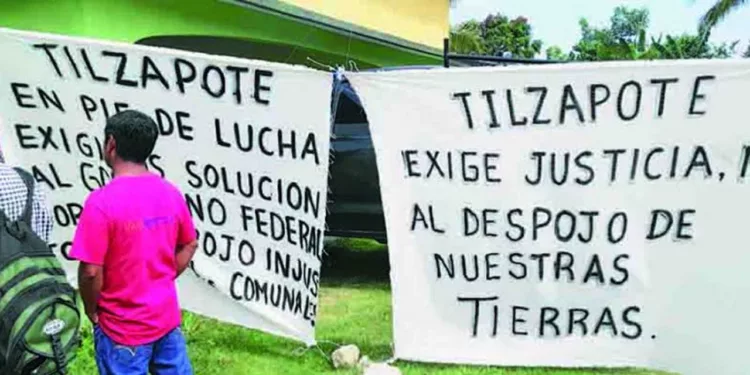 TILZAPOTE
EN PIE DE LUCHA
SOLUCION
AL FEDERAL
INJUS
COMUNALES
TILZAPOTE
EXIGE JUSTICIA,
AL DESPOJO DE
NUESTRAS
TIERRAS.